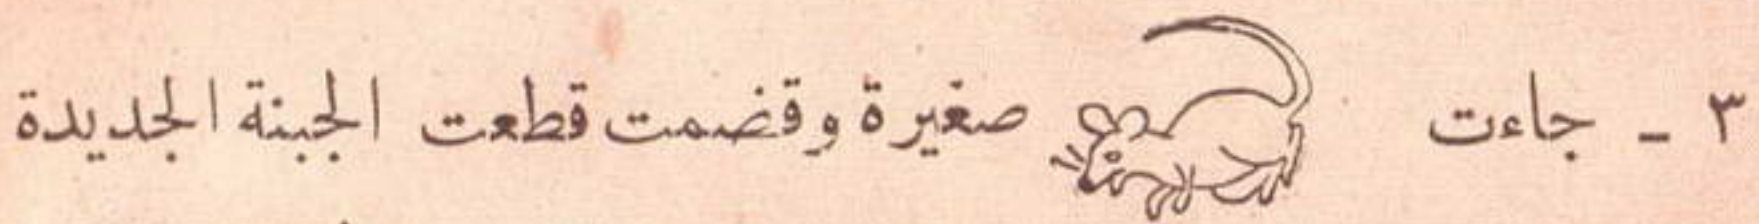 ٣ - جاءت صغيرة وقضمت قطعت الجبنة الجديدة